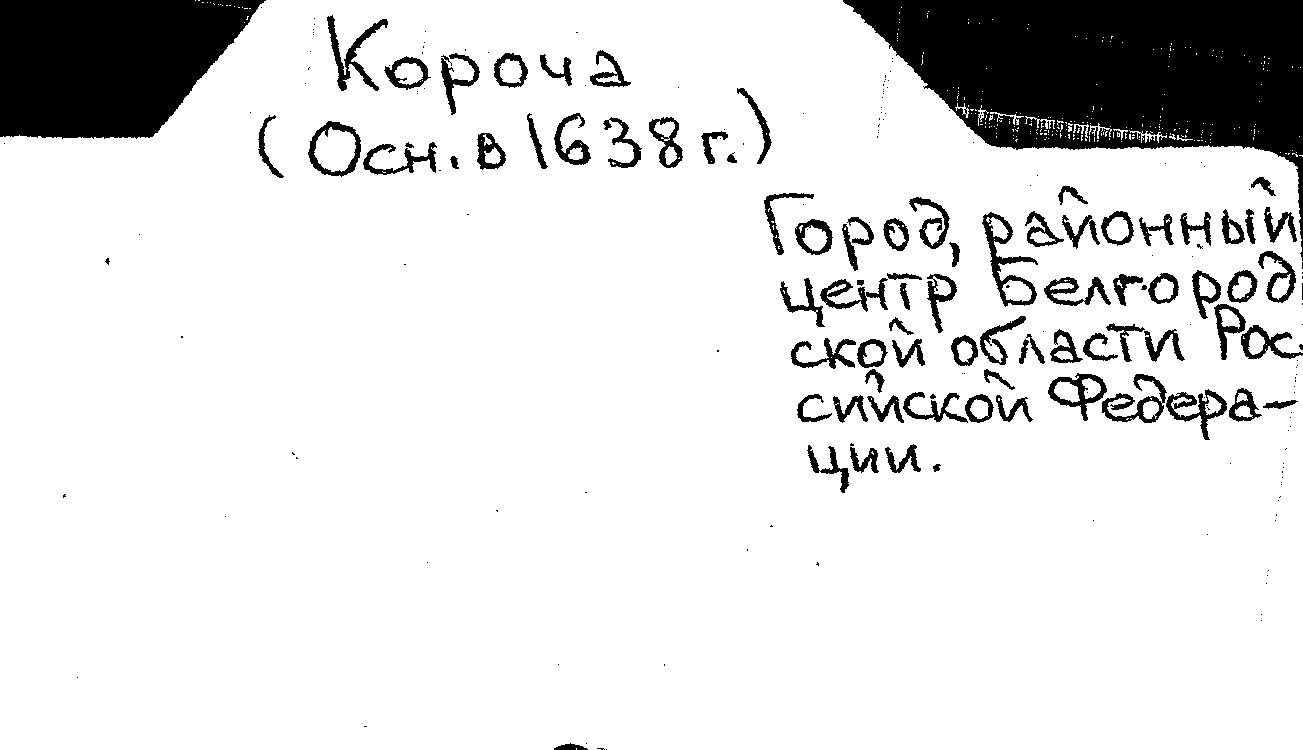 Короча
(Осн. в 1638 г.)
Город, районный
центр Белгород
ской области Рос
сийской Федера-
ции.